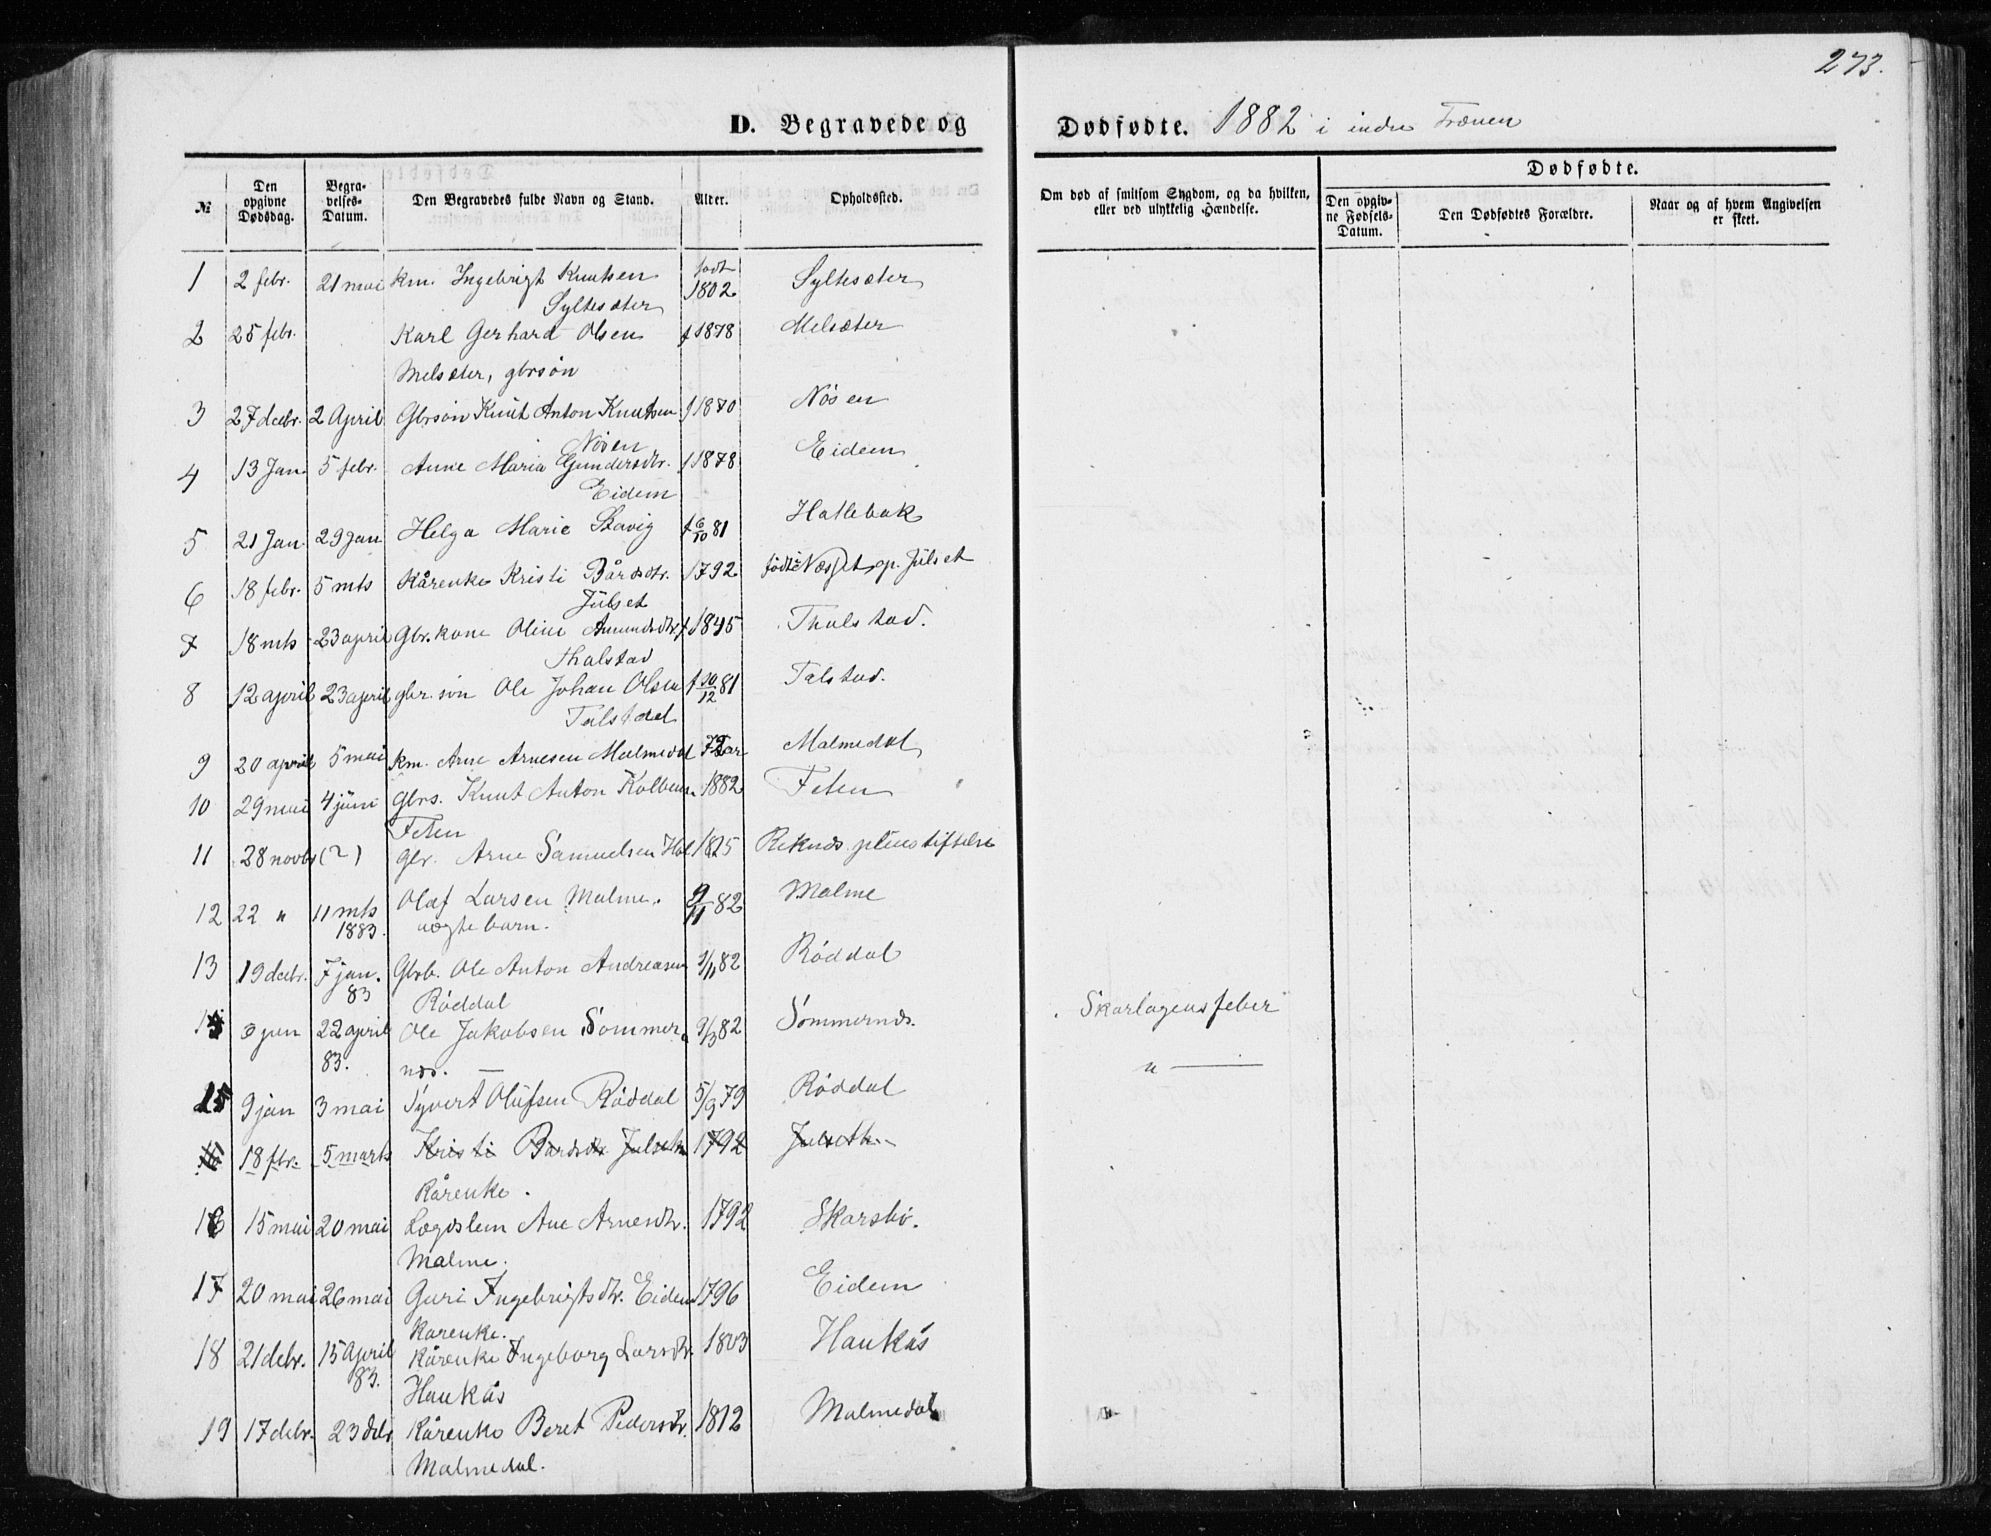 273.
D. Begravede og Dødfødte. 1882 i indre Frænen
№
Den opgivne Dødsdag.
Begravelses-Datum.
Den Begravedes fulde Navn og Stand.
Alder.
Opholdssted.
Om død af smitsom Sygdom, og da hvilken, eller ved ulykkelig Hændelse.
Dødfødte.
Den opgivne Fødsels-Datum.
Den Dødfødtes Forældre.
Naar og af hvem Angivelsen er skeet.
1 2 febr. 21 mai km. Ingebrigt Knutsen født 1802 Syltesæter
Syltesæter
2 25 febr. Karl Gerhard Olsen f 1878 Melsæter
Melsæter, gbrsøn
3 27 decbr. 2 April Gbrsøn Knut Anton Knutsen f 1870 Nøsen
Nøsen
4 13 Jan. 5 febr. Anne Maria Gundersdtr. f 1878 Eidem
Eidem
5 21 Jan. 29 Jan Helga Marie Stavig f 6/10 81 Hatlebak
6 18 febr. 5 mts Kårenke Kristi Bårdsdtr. 1792 født i Næsset, op. Julset
Julset
7 18 mts 23 april Gbr.kone Oline Amundsdtr f 1845 Thalstad.
Thalstad
8 12 april 23 april gbr. søn Ole Johan Olsen f 30/12 81 Talstad.
Talstad
9 20 april 5 mai km. Arne Arnesen Malmedal 72 ar Malmedal
10 29 mai 4 juni Gbrs. Knut Anton Kolbens. 1882 Feten
Feten
11 28 novbr (?) Gbr. Arne Samuelsen Hol 1825 Reknæs pleiestiftelse
12 22 " 11 mts Olaf Larsen Malme. 9/11 82 Malme
1883. uægte barn.
13 19 decbr. 7 jan. Gbrb. Ole Anton Andreasen 9/11 82 Røddal
83 Røddal
14 3 jan 22 april Ole Jakobsen Sommer 9/3 82 Sømmernæs. Skarlagensfeber
83. næs. —
15 9 jan 3 mai Syvert Olufsen Røddal 5/9 79 Røddal " —
16 18 fbr. 5 marts Kristi Bardsdr Julseth 1792 Julseth.
Kårenke.
16 15 mai 20 mai Lægdslem Ane Arnesdtr. 1792 Skarsbø.
Malme.
17 20 mai 26 mai Guri Ingebrigtsdtr. Eidem 1796 Eidem
Karenke.
18 21 debr. 15 April Kårenke Ingeborg Larsdtr. 1803 Haukås
83. Haukås
19 17 debr. 23 debr Kårenke Beret Pedersdtr. 1812 Malmedal
Malmedal.